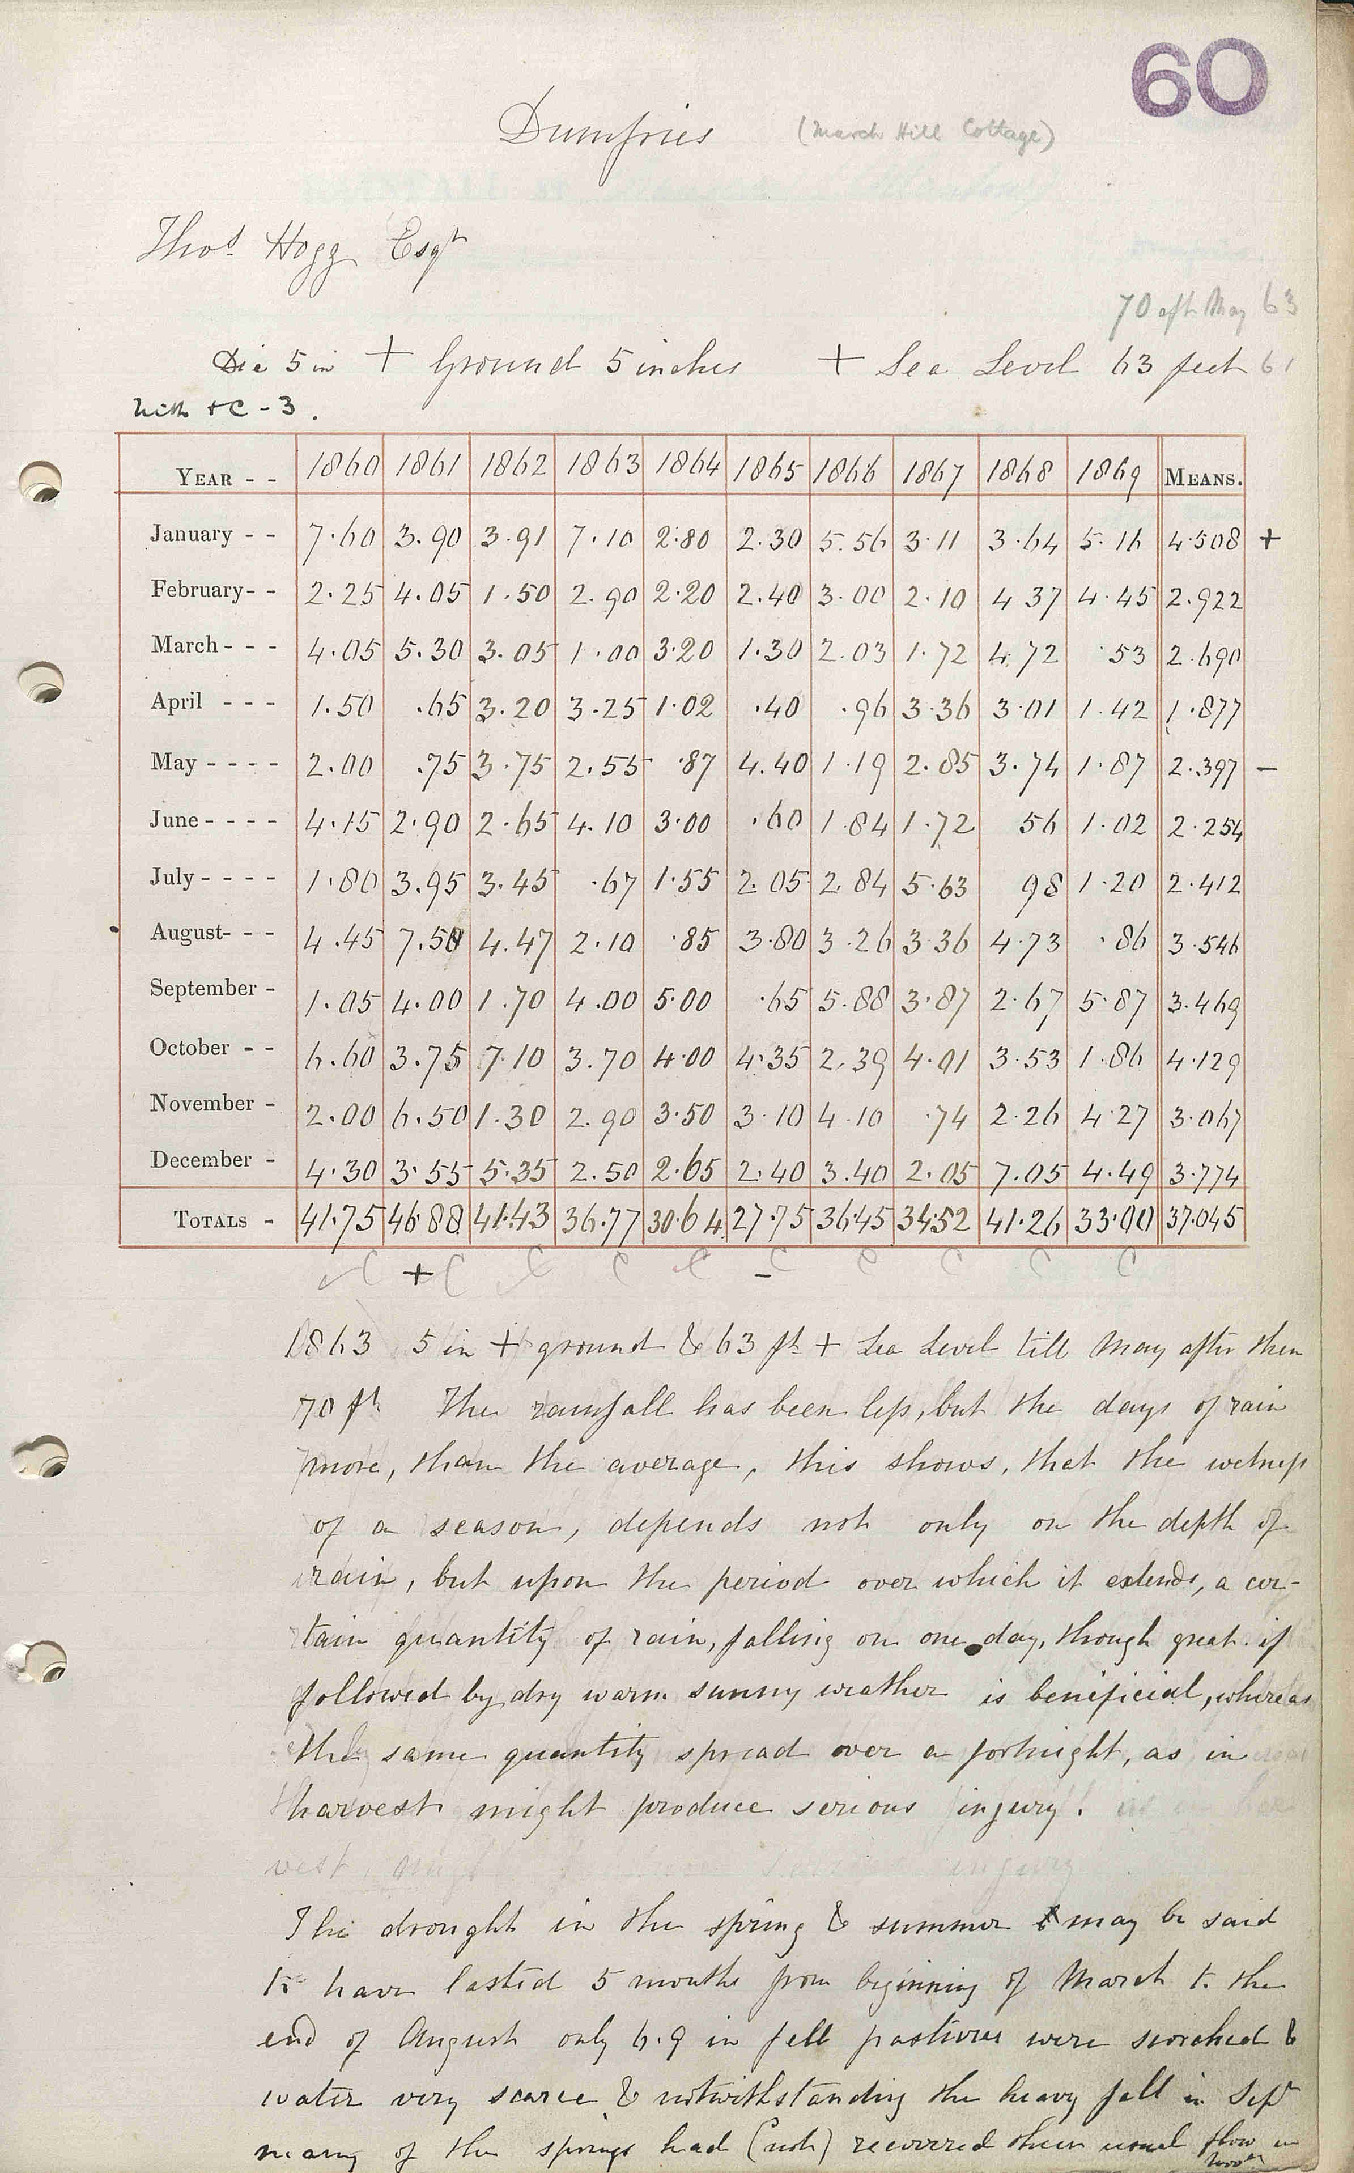 60
Dumfries (March Hill Cottage)
Thos. Hogg Esqr
70 aft May 63
Dia 5 in + Ground 5 inches + Sea Level 63 feet 61
C - 3.
YEAR - - 1860 1861 1862 1863 1864 1865 1866 1867 1868 1869 MEANS.
January - - 7.60 3.90 3.91 7.10 2.80 2.30 5.56 3.11 3.64 5.16 4.508 +
February- - 2.25 4.05 1.50 2.90 2.20 2.40 3.00 2.10 4 37 4.45 2.922
March - - - 4.05 5.30 3.05 1.00 3.20 1.30 2.03 1.72 4.72 .53 2.690
April - - - 1.50 .65 3.20 3.25 1.02 .40 .96 3.36 3.01 1.42 1.877
May - - - - 2.00 .75 3.75 2.55 .87 4.40 1.19 2.85 3.74 1.87 2.397 -
June - - - - 4.15 2.90 2.65 4.10 3.00 .60 1.84 1.72 56 1.02 2.254
July - - - - 1.80 3.95 3.45 .67 1.55 2.05 2.84 5.63 98 1.20 2.412
August- - - 4.45 7.58 4.47 2.10 .85 3.80 3.26 3.36 4.73 .86 3.546
September - 1.05 4.00 1.70 4.00 5.00 .65 5.88 3.87 2.67 5.87 3.469
October - - 6.60 3.75 7.10 3.70 4.00 4.35 2.39 4.01 3.53 1.86 4.129
November - 2.00 6.50 1.30 2.90 3.50 3.10 4.10 .74 2.26 4.27 3.067
December - 4.30 3.55 5.35 2.50 2.65 2.40 3.40 2.05 7.05 4.49 3.774
TOTALS - 41.75 46 88 41.43 36.77 30.64 27.75 36.45 34.52 41.26 33.00 37.045
C + C C C C - C C C C C
1863 5 in + ground & 63 ft + Sea Level till May after then
70 ft The rainfall has been less, but the days of rain
more, than the average, this shows, that the wetness
of a season, depends not only on the depth of
rain, but upon the period over which it extends, a cer-
tain quantity of rain, falling on one day, though great if
followed by dry warm sunny weather is beneficial, whereas
the same quantity spread over a fortnight, as in
harvest might produce serious injury.
vest injury
The drought in the spring & summer may be said
to have lasted 5 months from beginning of March to the
end of August only 6.9 in fell pastures were scorched &
water very scarce & notwithstanding the heavy fall in Sept
many of the springs had (not) recovered their usual flow in
Novr